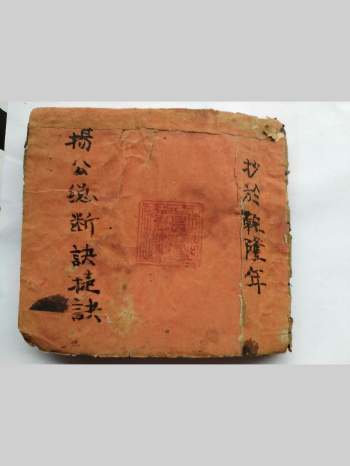 抄於乾隆年
楊公總斷訣捷訣